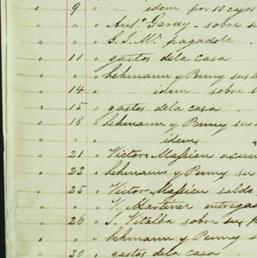 " 9 " idem por 10 cajas
" " " Anto. Garay - sobre s
" " " G. J. Ma. pagadole
" 11 " gastos dela casa
" " " Lehmann y Penny sus
" 14 " idem sobre s
" 15 " gastos dela casa
" 18 " Lehmann y Penny su
" " " idem
" 21 " Victor Massieu
" 22 " Lehmann y Penny su
" 25 " Victor Massieu saldo
" " " V. Martinez entregad
" 26 " J. Vitalba sobre su p
" " " Lehmann y Penny s
" 30 " gastos dela casa